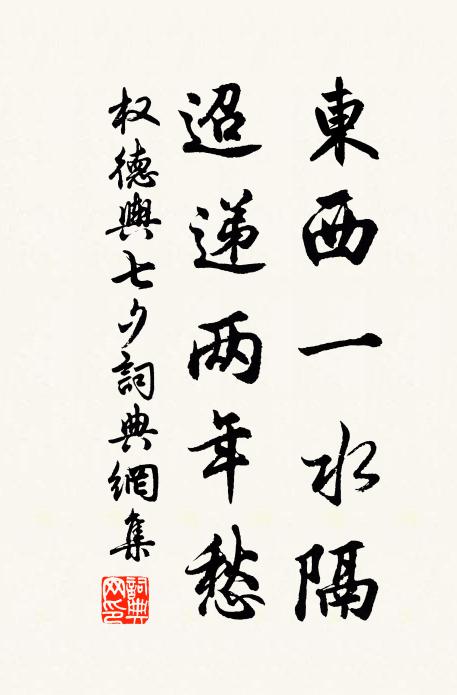 東西一水隔
迢递两年愁
权德輿七夕詞典網集
詞典网印